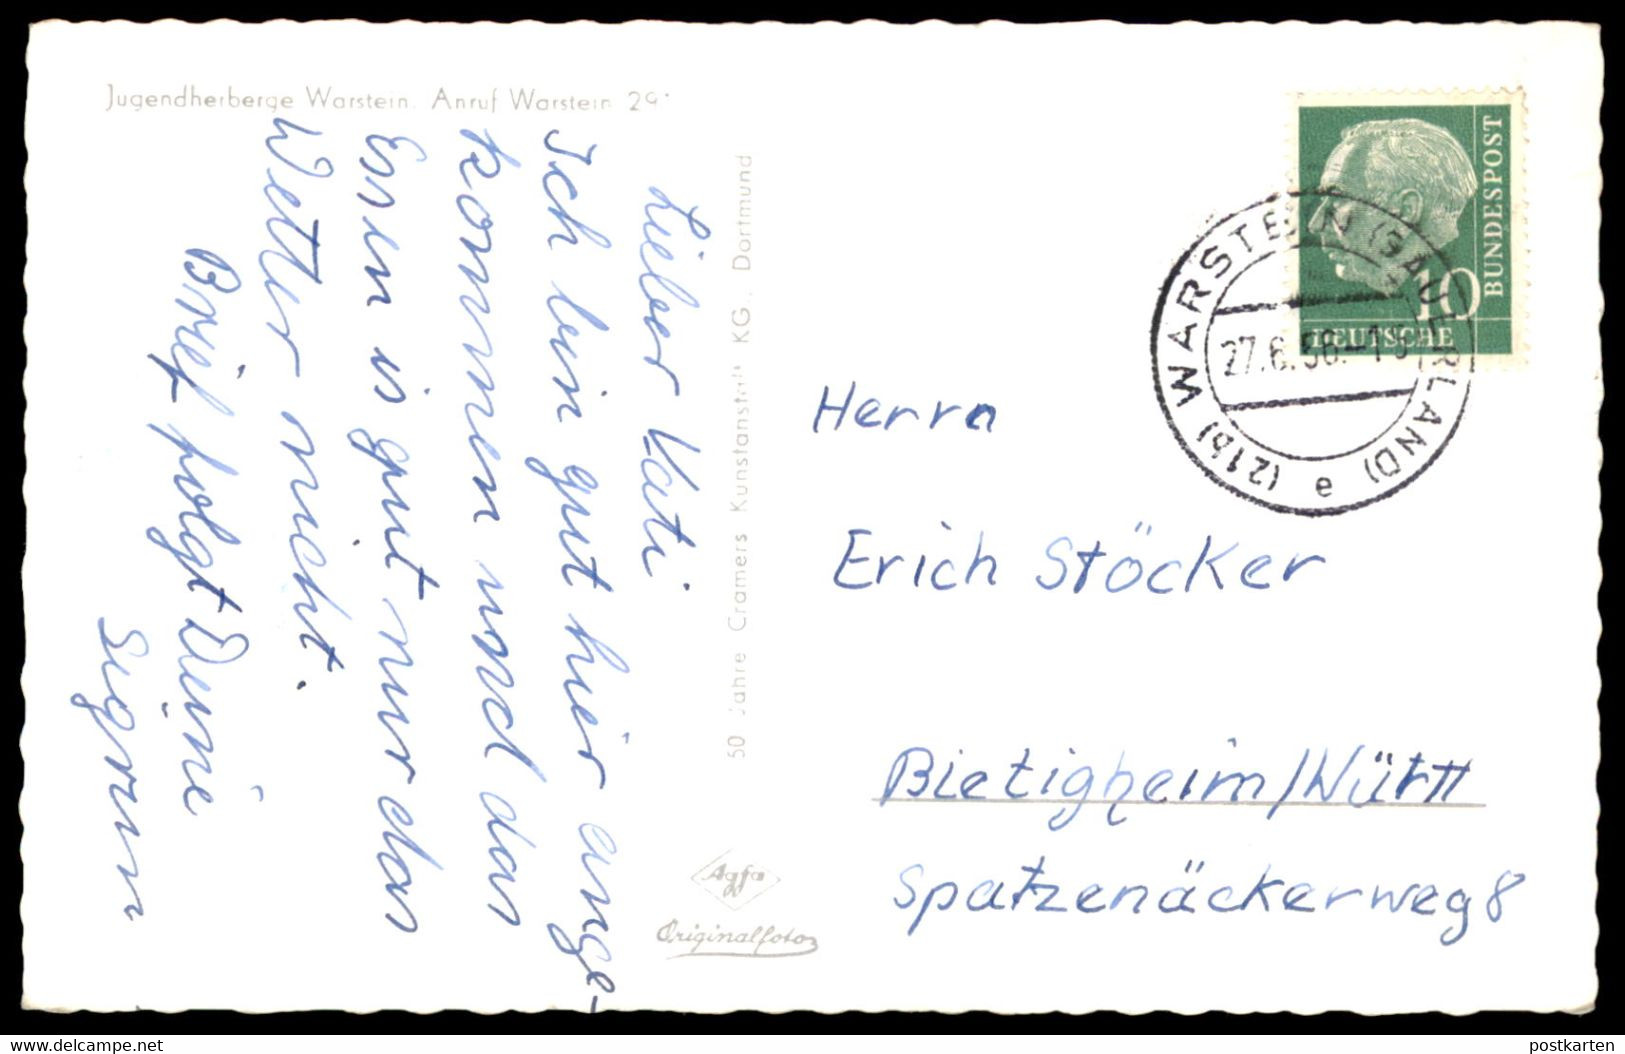 Jugendherberge Warstein. Anruf Warstein 29
Lieber Vati
Ich bin gut hier ange-
kommen und das
Essen is gut nur das
Wetter nicht.
Brief folgt Deine
Sigrun
50 Jahre Cramers Kunstanstalt KG., Dortmund
Agfa
Originalfoto
DEUTSCHE
BUNDESPOST
10
(21b) WARSTEIN (SAUERLAND)
e
27.6.58.-1
Herrn
Erich Stöcker
Bietigheim/Württ
Spatzenäckerweg 8
www.delcampe.net
postkarten